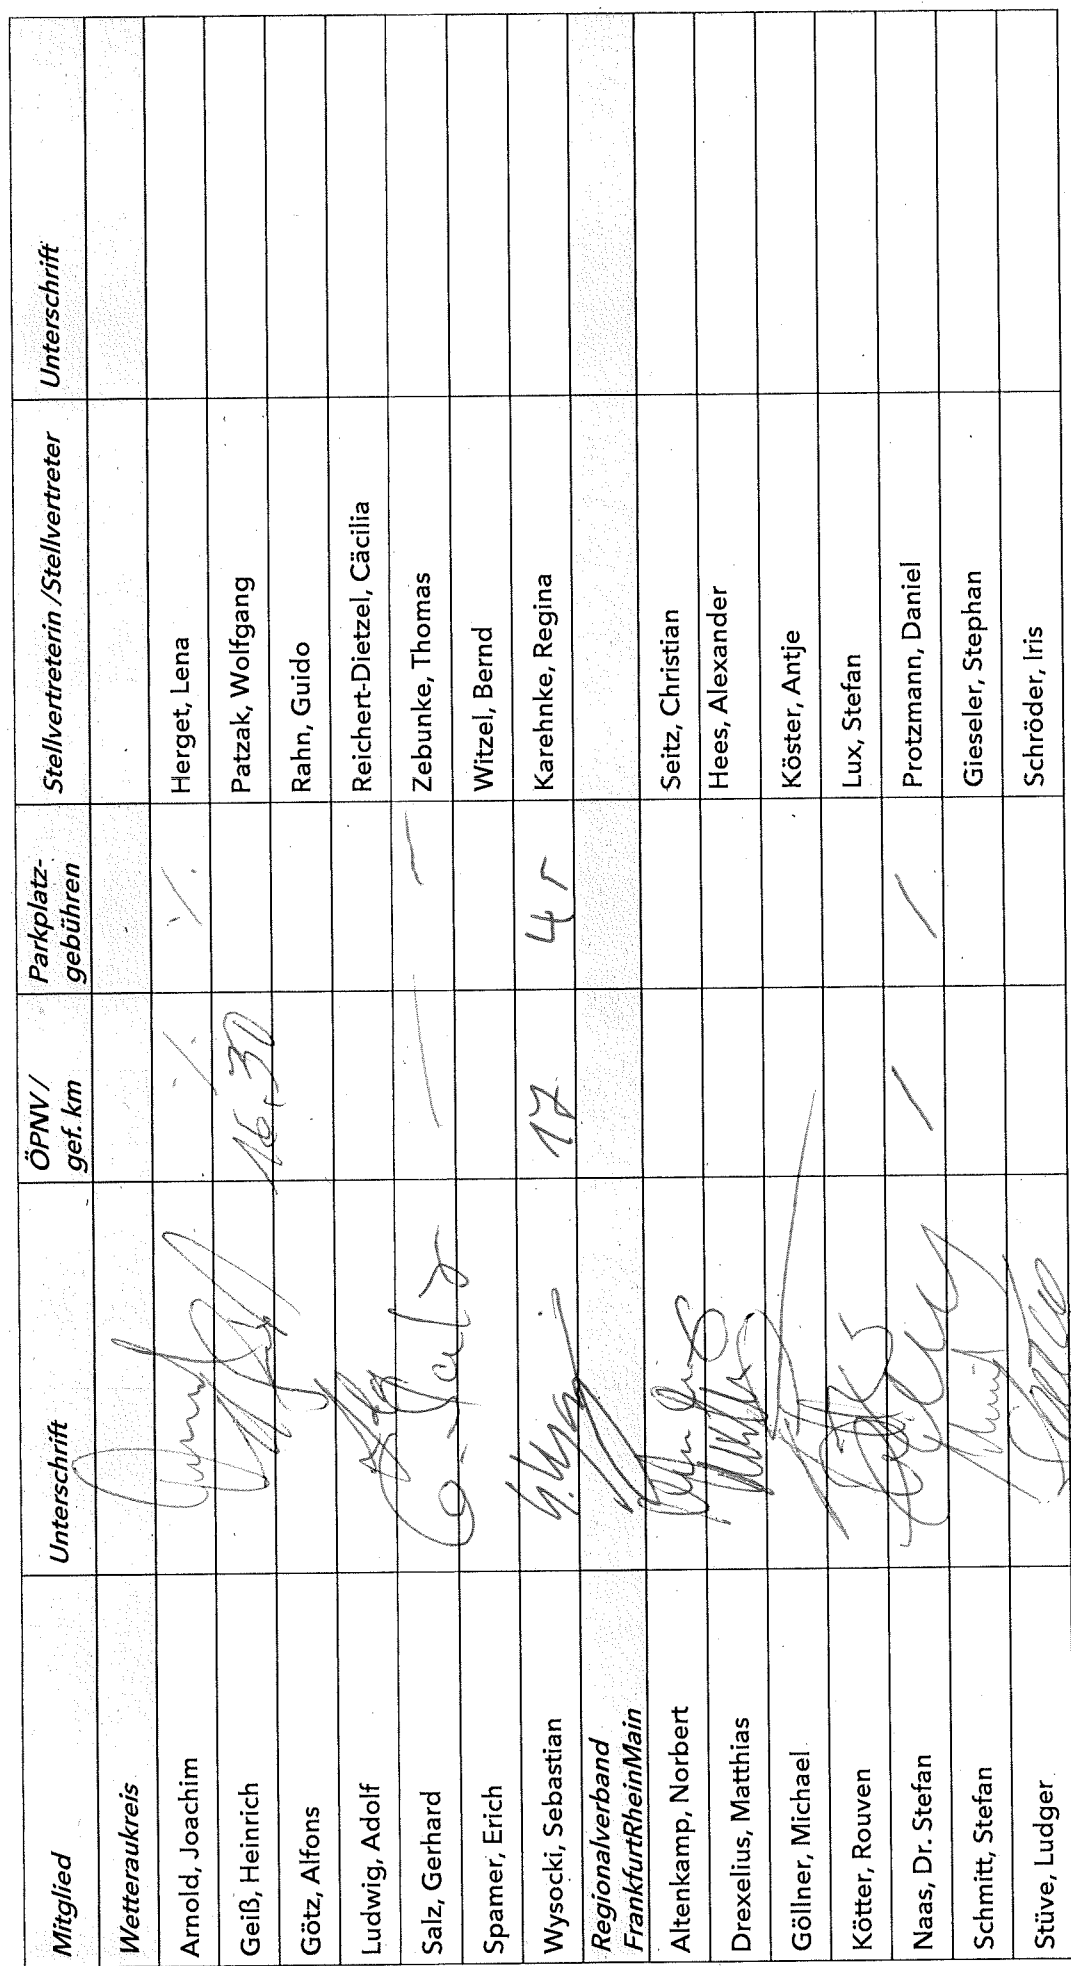 Mitglied Unterschrift ÖPNV / gef. km Parkplatz- gebühren Stellvertreterin /Stellvertreter Unterschrift
Wetteraukreis
Arnold, Joachim ./. ./. Herget, Lena
Geiß, Heinrich 16,30 Patzak, Wolfgang
Götz, Alfons Rahn, Guido
Ludwig, Adolf Reichert-Dietzel, Cäcilia
Salz, Gerhard — — Zebunke, Thomas
Spamer, Erich Witzel, Bernd
Wysocki, Sebastian 17 4 Karehnke, Regina
Regionalverband
FrankfurtRheinMain
Altenkamp, Norbert Seitz, Christian
Drexelius, Matthias Hees, Alexander
Göllner, Michael Köster, Antje
Kötter, Rouven Lux, Stefan
Naas, Dr. Stefan / / Protzmann, Daniel
Schmitt, Stefan Gieseler, Stephan
Stüve, Ludger Schröder, Iris